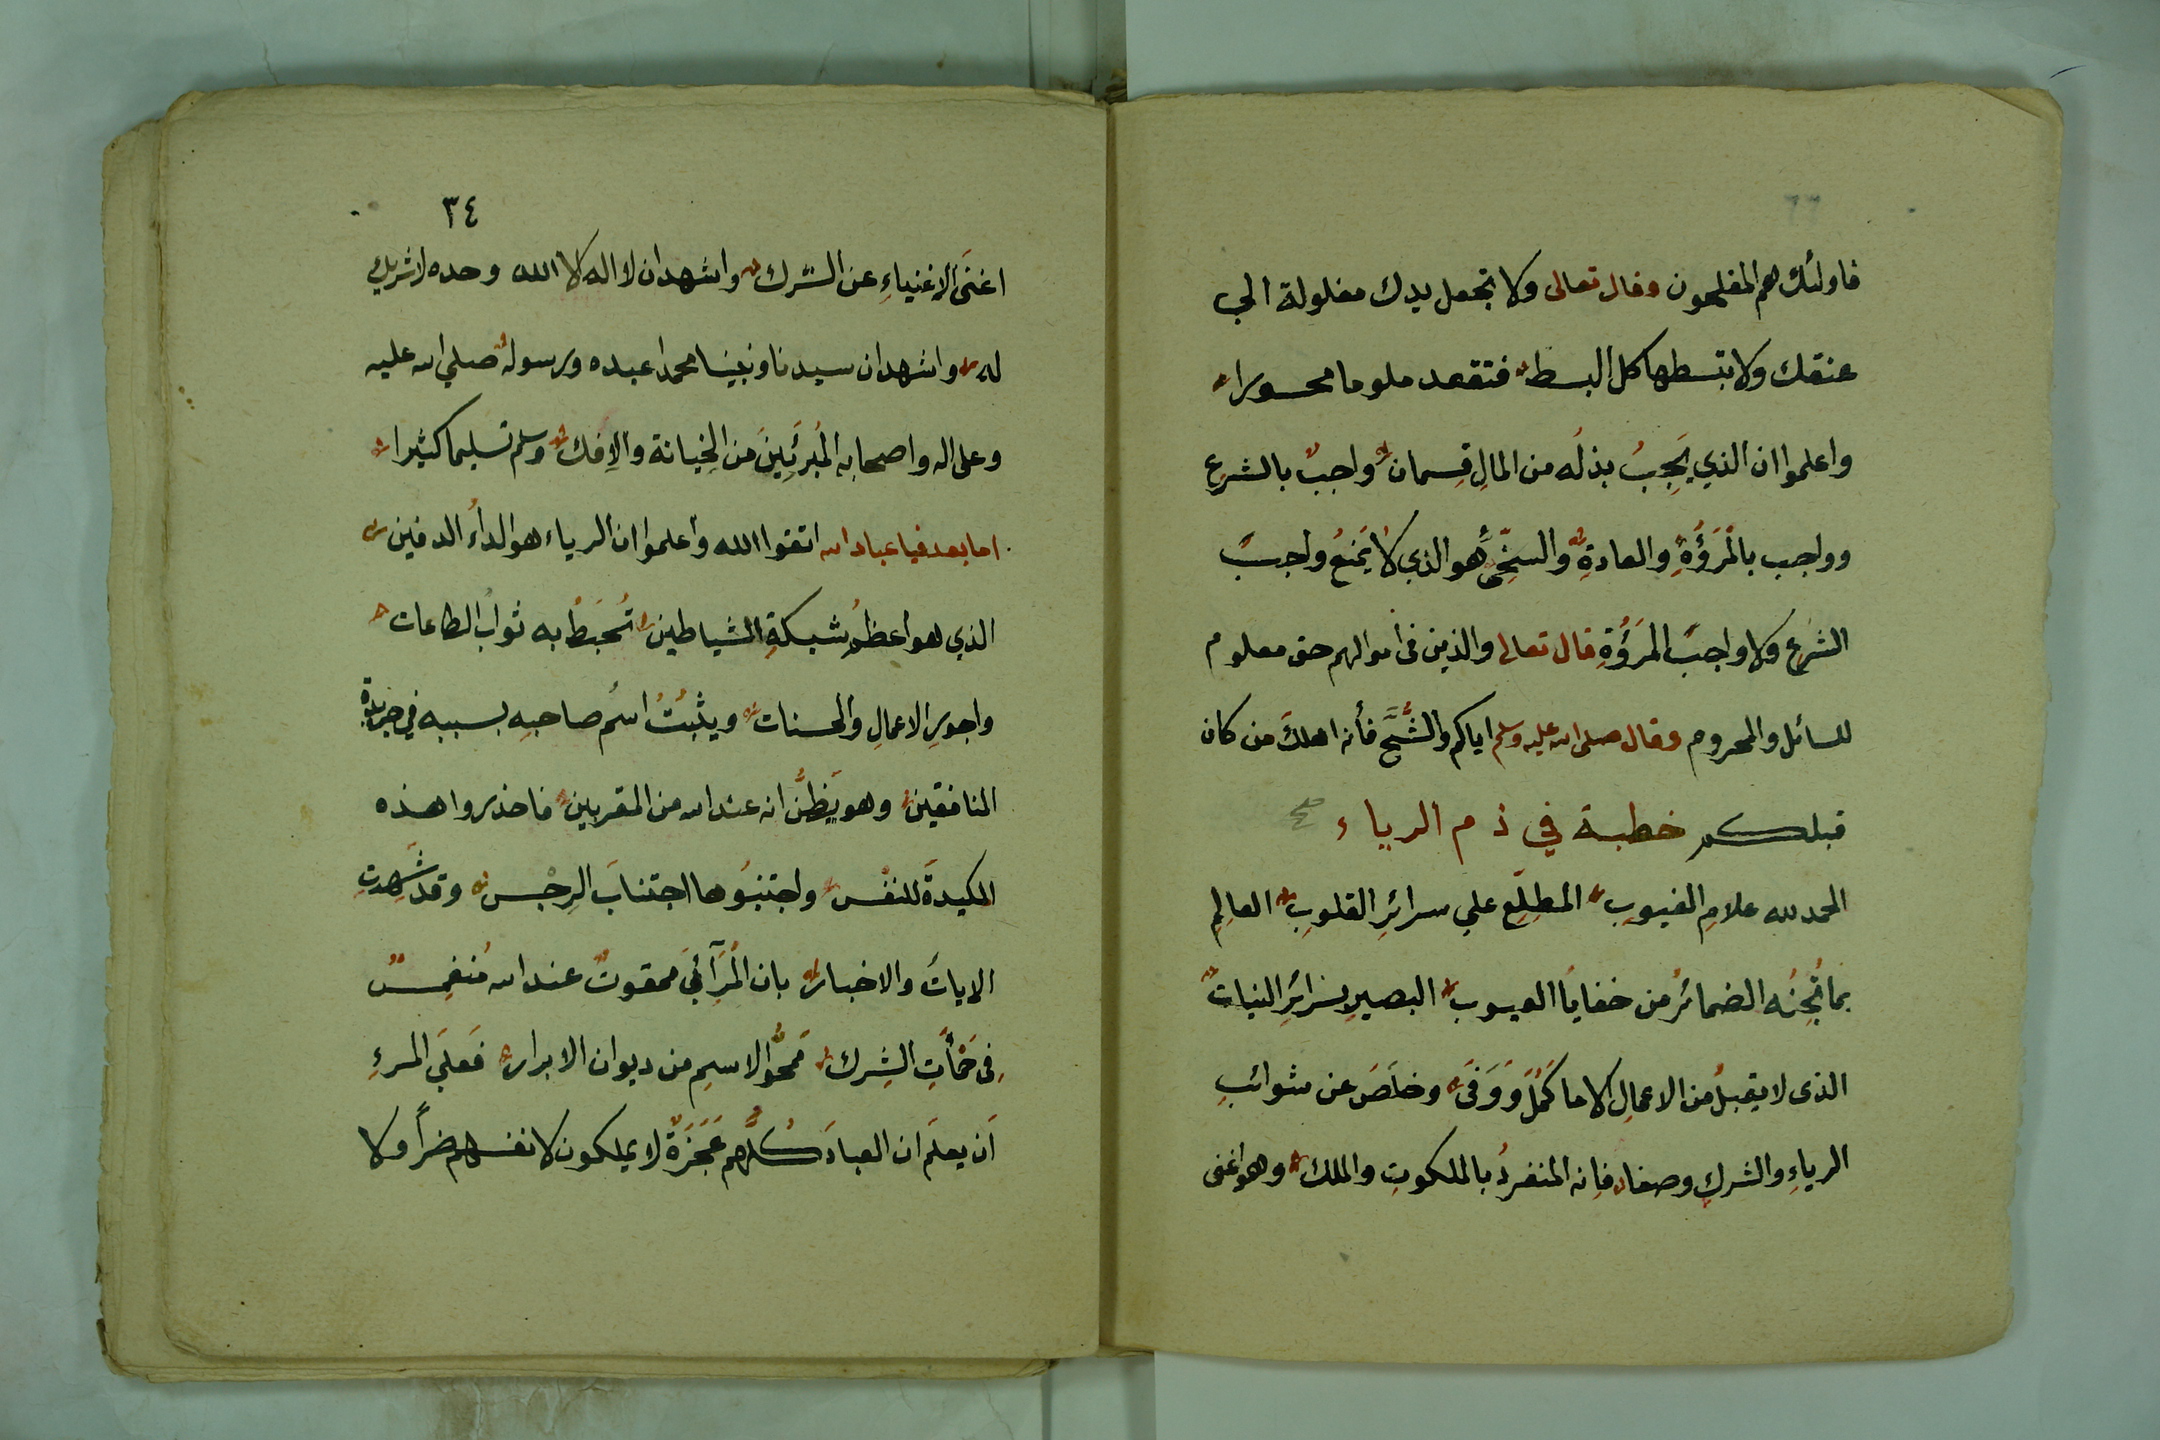 فاولئك هم المفلحون وقال تعالى ولا تجعل يدك مغلولة الي
عنقك ولا تبسطها كل البسط فتقعد ملوما محسورا
واعلموا ان الذي يَجِبُ بذلُه من المالِ قِسمان واجبٌ بالشرع
وواجب بالمَرُؤَةِ والعادةِ والسخِّىُ هو الذي لا يَمنعُ واجبَ
الشرَع ولا واجبَ المَرُؤَةِ قال تعالى والذين فى أموالهم حق معلوم
للسائل والمحروم وقال صلى الله عليه وسلم اياكم والشُّحَّ فأنه اهلكَ من كان
قبلكم خطبة في ذم الرياء
الحمد لله علامِ الغيوبِ المطلِّعِ علي سرائرِ القلوبِ العالِمِ
بما تُجِنُه الضمائرُ من خفايا العيوبِ البصيرِ بسَرائرِ النياتِ
الذى لا يقبلُ من الاعمالِ الا ما كَمُلَ وَوَفَىَ وخلَصَ عن شوائبِ
الرياءِ والشركِ وصفا فانه المنفردُ بالملكوتِ والملك وهو اغنى
٣٤
اغنَى الاغنياءِ عن الشرك واشهد ان لا اله الا الله وحده لا شريك
له واشهد ان سيدنا ونبينا محمدا عبده ورسولهُ صلي الله عليه
وعلى اله واصحابه المُبرَئِينَ من الخِيانة والاِفك وسلم تسليما كثيرا
اما بعد فيا عباد الله اتقوا الله واعلموا ان الرياء هو الداءُ الدفين
الذي هو اعظمُ شبكةِ الشياطين تُحبَطُ به ثوابُ الطاعات
واجورِ الاعمالِ والحسنات ويثبتُ اسمُ صاحبِه بسببه في جريدة
المنافقين وهو يَظنُّ انه عند الله من المقربين فاحذروا هذه
المكيدةَ للنفس واجتنبُوها اجتنابَ الرِجْس وقد شَهِدتِ
الاياتُ والاخبار بان المُرَآئيَ ممقوتٌ عند الله مُنغمِسٌ
فى حَمْأَتِ الشِرك مَمحُوُّ الاسمِ من ديوان الابرار فَعلَي المرءِ
اَن يعلَم ان العبادَ كُلَّهم عَجَزَةٌ لا يملكون لانفسهم ضراً ولا